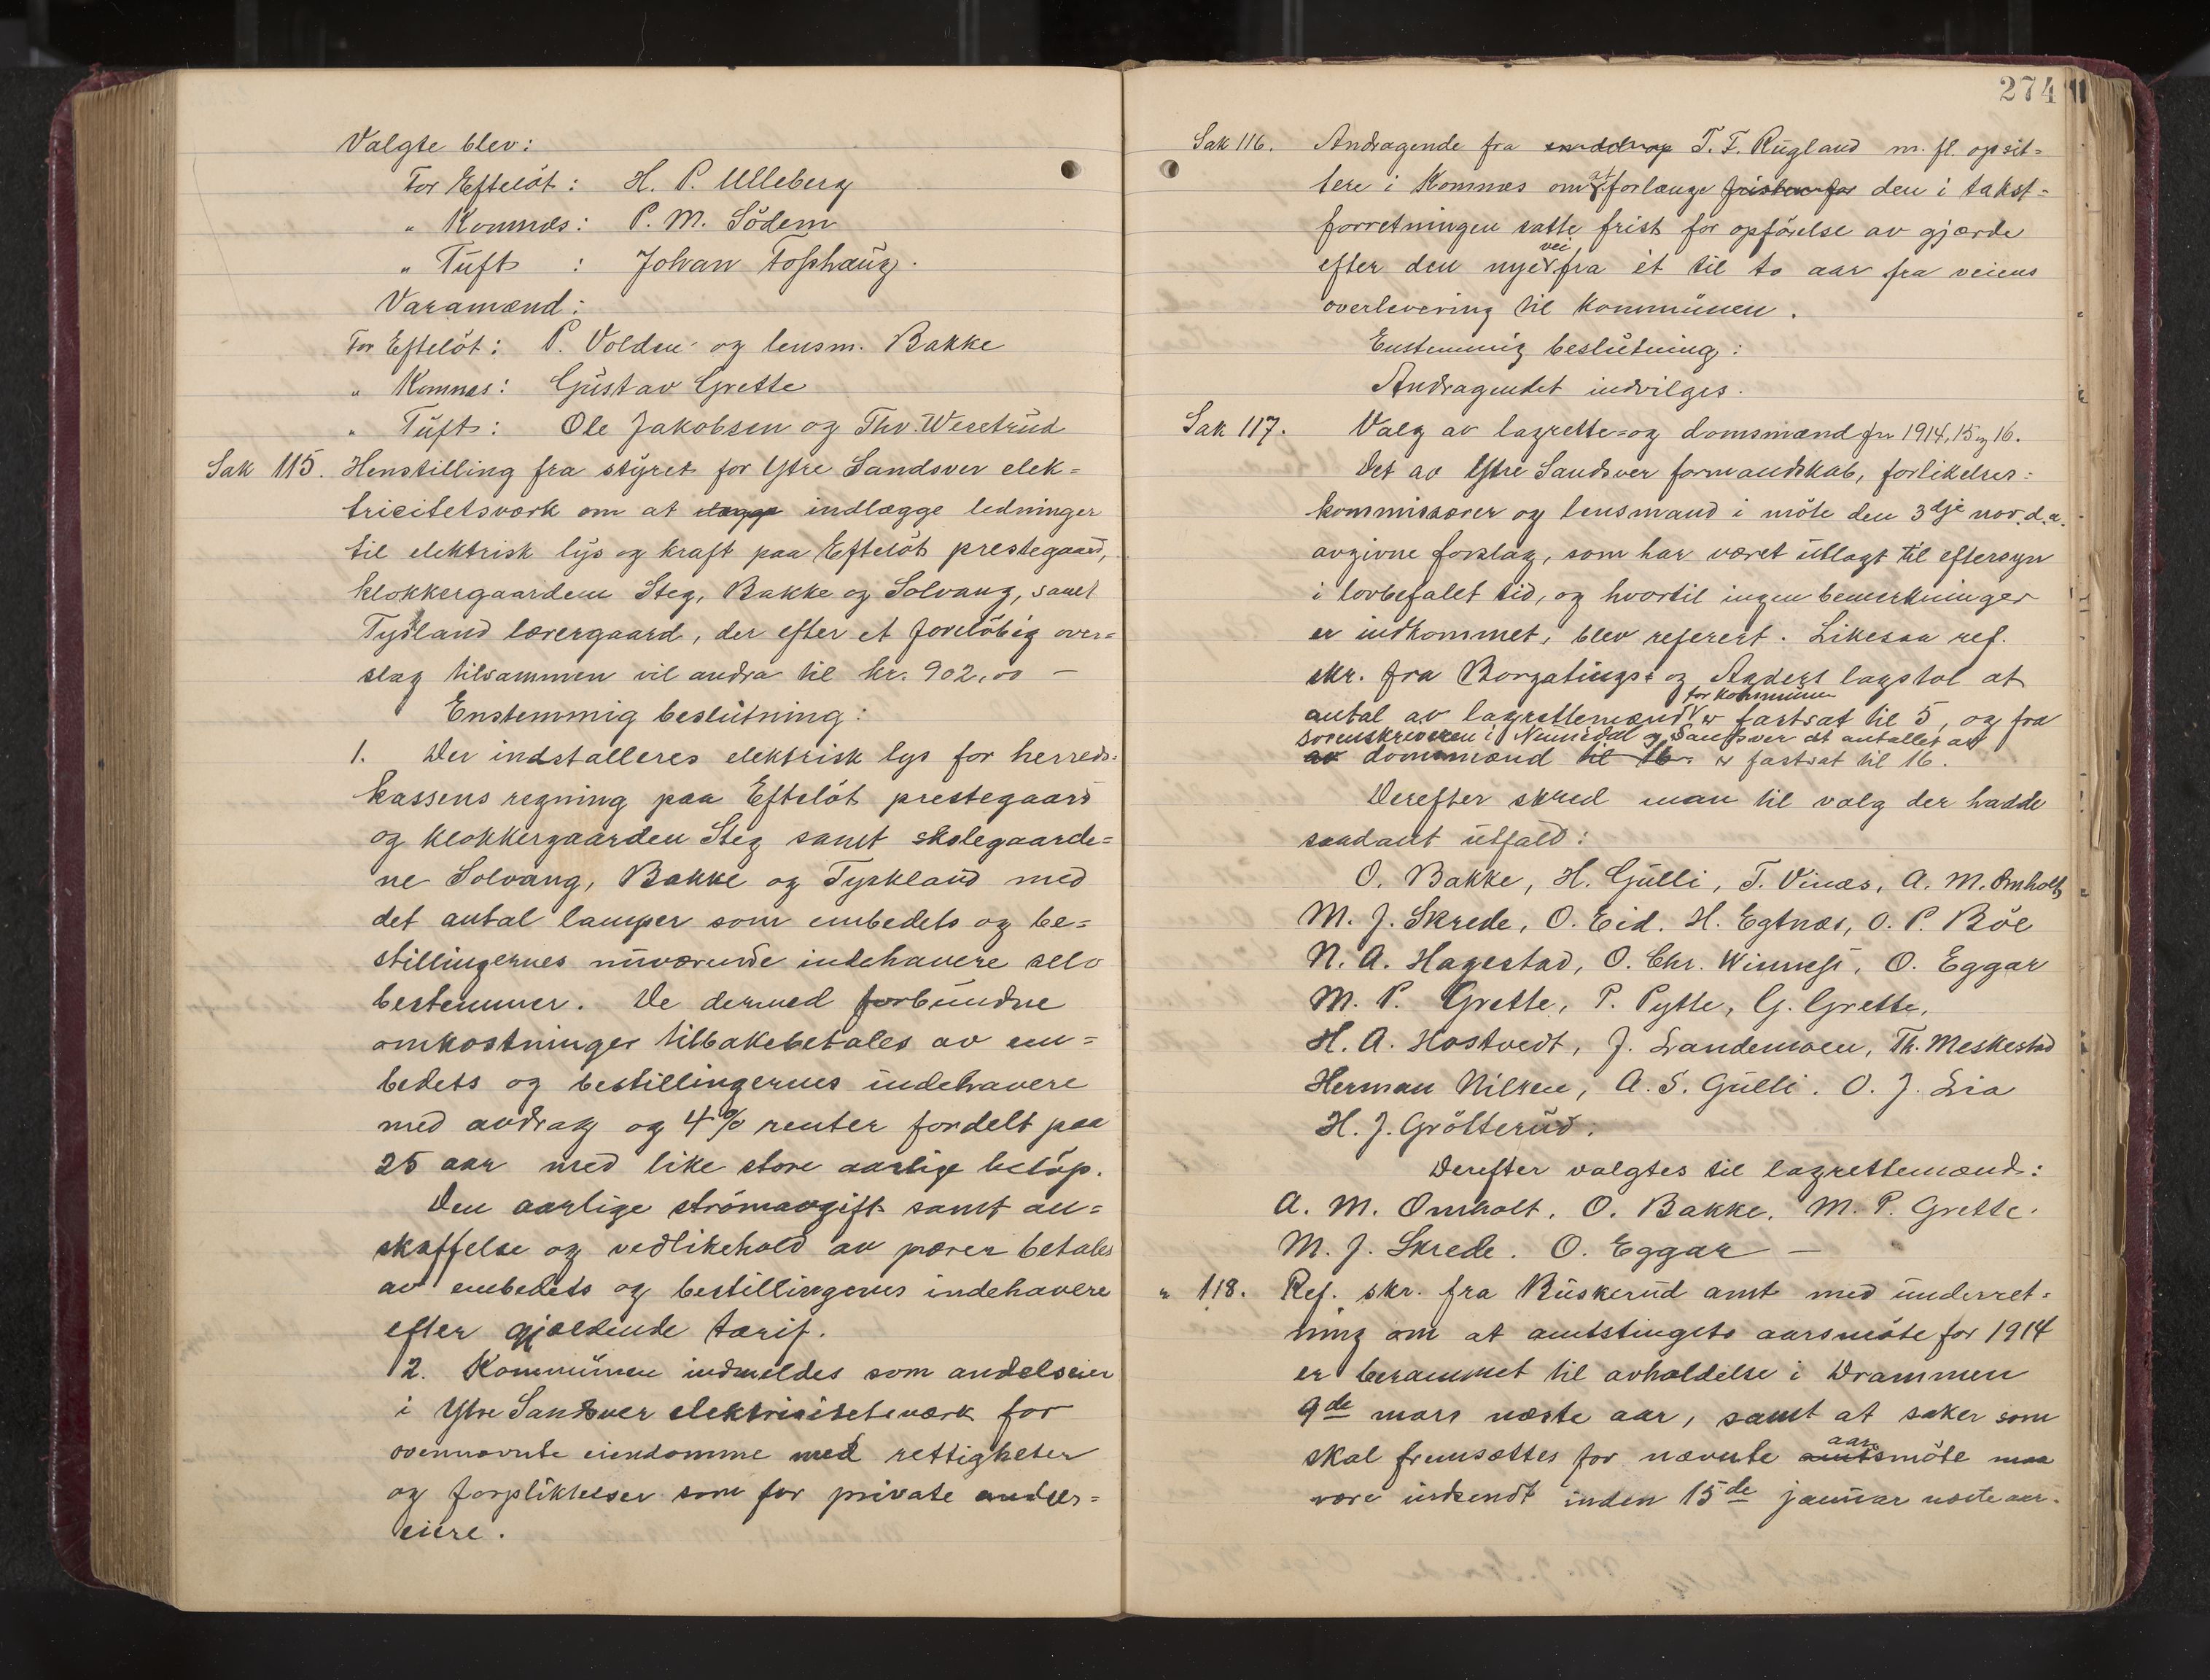 Valgte blev:
For Efteløt: H. P. Ulleberg
" Komnes: P. M. Södem
" Tuft : Johan Fosshaug.
Varamænd:
For Efteløt: P. Volden og lensm. Bakke
" Komnes: Gustav Grette
" Tuft: Ole Jakobsen og Thv. Wesetrud
Sak 115. Henstilling fra styret for Ytre Sandsver elek=
tricitetsværk om at indlægge ledninger
til elektrisk lys og kraft paa Efteløt prestegaard,
klokkergaarden Steg, Bakke og Solvang, samt
Tyskland lærergaard, der efter et foreløbig over=
slag tilsammen vil andra til kr. 902,00 —
Enstemmig beslutning:
1. Der indstalleres elektrisk lys for herreds=
kassens regning paa Efteløt prestegaard
og klokkergaarden Steg samt skolegaarde=
ne Solvang, Bakke og Tyskland med
det antal lamper som embedets og be=
stillingernes nuværende indehavere selv
bestemmer. De dermed forbundne
omkostninger tilbakebetales av em=
bedets og bestillingernes indehavere
med avdrag og 4% renter fordelt paa
25 aar med like store aarlige beløp.
Den aarlige strømavgift samt an=
skaffelse og vedlikehold av pærer betales
av embedets og bestillingenes indehavere
efter gjældende tarif.
2. Kommunen indmeldes som andelseier
i Ytre Sandsver elektricitetsværk for
ovennævnte eiendomme med rettigheter
og forpliktelser som for private andels=
eiere.
274
Sak 116. Andragende fra T. F. Rugland m. fl. opsit=
tere i Komnes om at forlænge fristen for den i takst=
forretningen satte frist for opförelse av gjærde
efter den nye vei fra ét til to aar fra veiens
overlevering til kommunen.
Enstemmig beslutning:
Andragendet indvilges.
Sak 117. Valg av lagrette= og domsmænd for 1914, 15 og 16.
Det av Ytre Sandsver formandskab, forlikelses=
kommissærer og lensmand i møte den 3dje nov. d.a.
avgivne forslag, som har været utlagt til eftersyn
i lovbefalet tid, og hvortil ingen bemerkninger
er indkommet, blev referert. Likesaa ref.
skr. fra Borgatings= og Agders lagstol at
antal av lagrettemænd for kommunen er fastsat til 5, og fra
sorenskriveren i Numedal og Sandsver at antallet av
av domsmænd til 16. er fastsat til 16.
Derefter skred man til valg der hadde
saadant utfald:
O. Bakke, H. Gulli, T. Vinæs, A. M. Omholt
M. J. Skrede, O. Eid. H. Egtnæs, O. P. Böe
N. A. Hagestad, O. Chr. Winness, O. Eggar
M. P. Grette, P. Pytte, G. Grette,
H. A. Hostvedt, J. Landemoen, Th. Meskestad
Herman Nilsen, A. S. Gulli. O. J. Lia
H. J. Gröllerud.
Derefter valgtes til lagrettemænd:
A. M. Omholt. O. Bakke. M. P. Grette.
M. J. Skrede. O. Eggar —
" 118. Ref. skr. fra Buskerud amt med underret=
ning om at amtstingets aarsmöte for 1914
er berammet til avholdelse i Drammen
9de mars næste aar, samt at saker som
skal fremsættes for nævnte aarsmöte maa
være indsendt inden 15de januar næste aar.